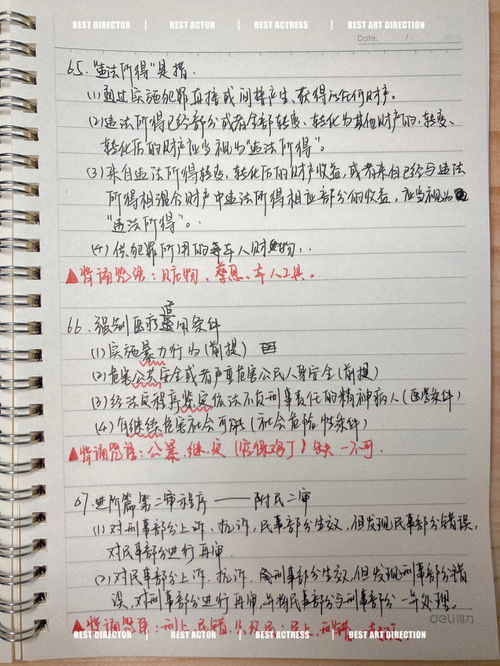 BEST DIRECTOR BEST ACTOR BEST ACTRESS BEST ART DIRECTION
Date.
65."违法所得"是指.
(1)通过实施犯罪直接或间接产生、获得的任何财产。
(2)违法所得已经部分或者全部转变、转化为其他财产的,转变、
转化后的财产应当视为"违法所得"。
(3)来自违法所得转变、转化后的财产收益,或者来自已经与违法
所得相混合财产中违法所得相应部分的收益,应当视为
"违法所得"。
(4)供犯罪所用的本人财物.
▲背诵咒语:
66.强制医疗适用条件
(1)实施暴力行为(前提)
(2)危害公共安全或者严重危害公民人身安全(前提)
(3)经法定程序鉴定依法不负刑事责任的精神病人(医学条件)
(4)有继续危害社会可能(社会危险性条件)
▲背诵咒语:公暴.继.定 缺一不可.
第二审程序——附民二审
(1)对刑事部分上诉、抗诉,民事部分生效,但发现民事部分错误,
对民事部分进行再审.
(2)对民事部分上诉、抗诉,刑事部分生效,但发现刑事部分错
误,对刑事部分进行再审,并将民事部分与刑事部分一并处理。
deli得力
▲背诵咒语:刑上.民错
BEST DIRECTOR BEST ACTOR BEST ACTRESS BEST ART DIRECTION